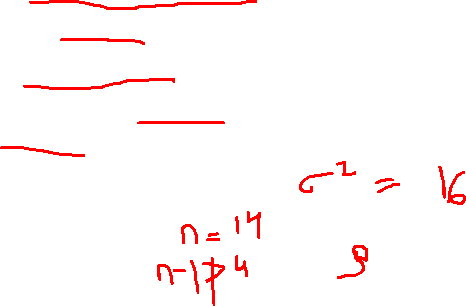 σ² = 16
n = 14
n-1 4